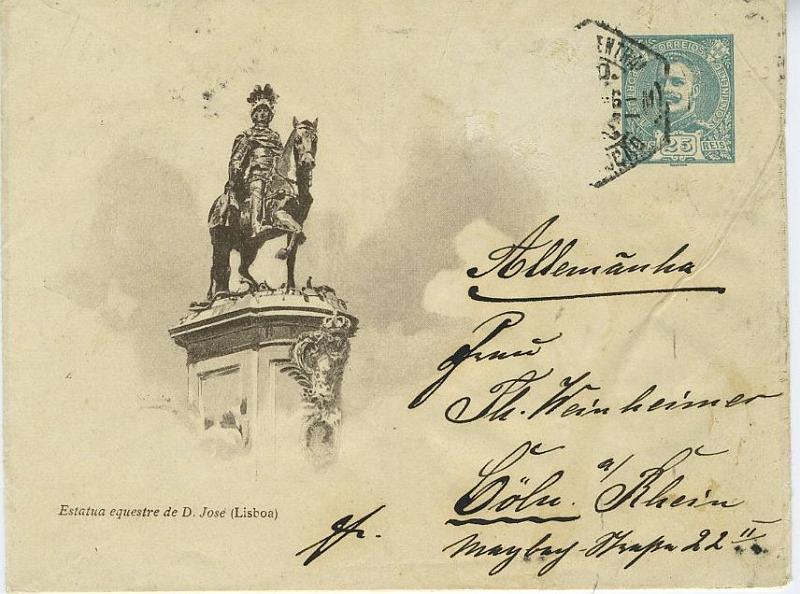 CORREIOS
25
REIS
Allemanha
Frau
Th. Weinheimer
Cöln a/ Rhein
Maybach-Straße 22 II
fr.
Estatua equestre de D. José (Lisboa)